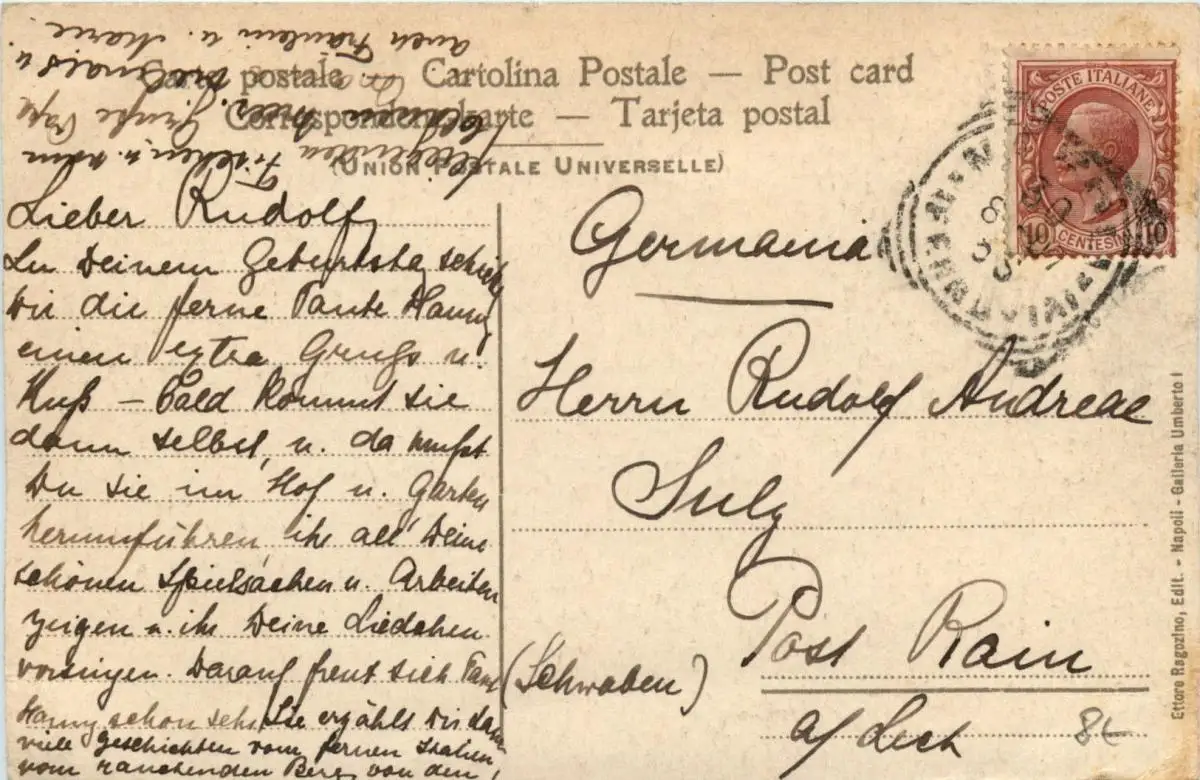 Carte postale — Cartolina Postale — Post card
Correspondenzkarte — Tarjeta postal
(Union Postale Universelle)
POSTE ITALIANE
10 CENTESIMI 10
Lieber Rudolf,
Zu Deinem Geburtstag schickt
Dir die ferne Tante Hanny
einen extra Gruss u.
Kuß – bald kommt sie
dann selbst, u. da mußt
Du sie im Hof u. Garten
herumführen, ihr all' Deine
schönen Spielsachen u. Arbeiten
zeigen u. ihr Deine Liedchen
vorsingen. Darauf freut sich Tante
Hanny schon sehr. Sie erzählt Dir dann
viele Geschichten vom fernen Italien,
vom rauchenden Berg, von den
fliegenden Fischen u. vom
Meer. Grüße Papa
Mama u.
auch Fräulein u. Marie
Germania
Herrn Rudolf Andreae
Sulz
Post Rain
(Schwaben)
a/ Lech
8€
Ettore Ragozino, Edit. - Napoli - Galleria Umberto I